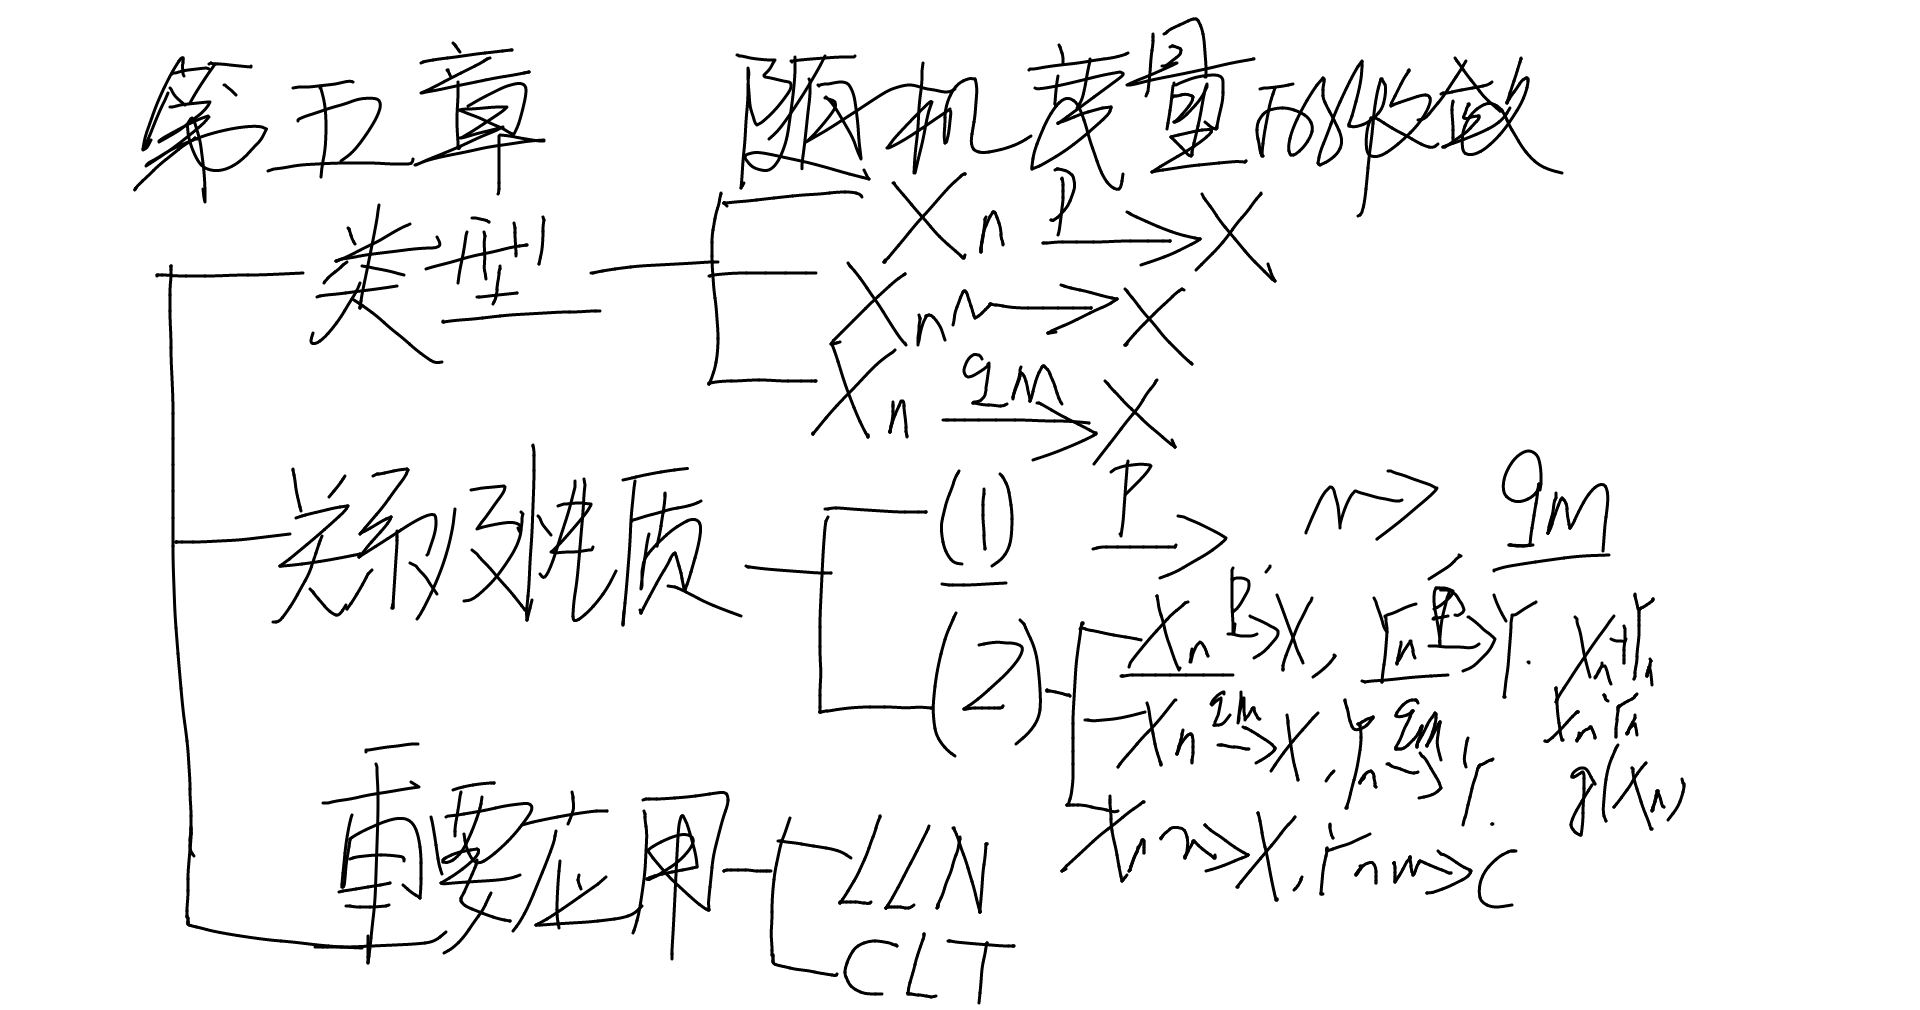 第五章 随机变量的收敛
类型 Xn P→ X
Xn ⇝ X
Xn qm→ X
关系及性质 (1) P→ ⇝ qm
(2) Xn P→ X, Yn P→ Y. Xn+Yn
Xn qm→ X, Yn qm→ Y. Xn·Yn
g(Xn)
Xn ⇝ X, Yn ⇝ C
重要应用 LLN
CLT